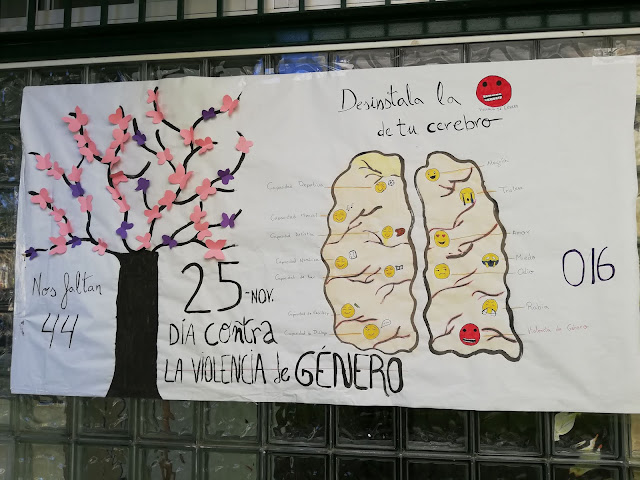 Nos faltan
44
25-NOV.
DÍA contra
LA VIOLENCIA de GÉNERO
Desinstala la
Violencia de Género
de tu cerebro
Capacidad Deportiva
Capacidad
Capacidad Artística
Capacidad
Capacidad de
Capacidad de
Capacidad de
Alegría
Tristeza
Amor
Miedo
Odio
Rabia
Violencia de Género
016